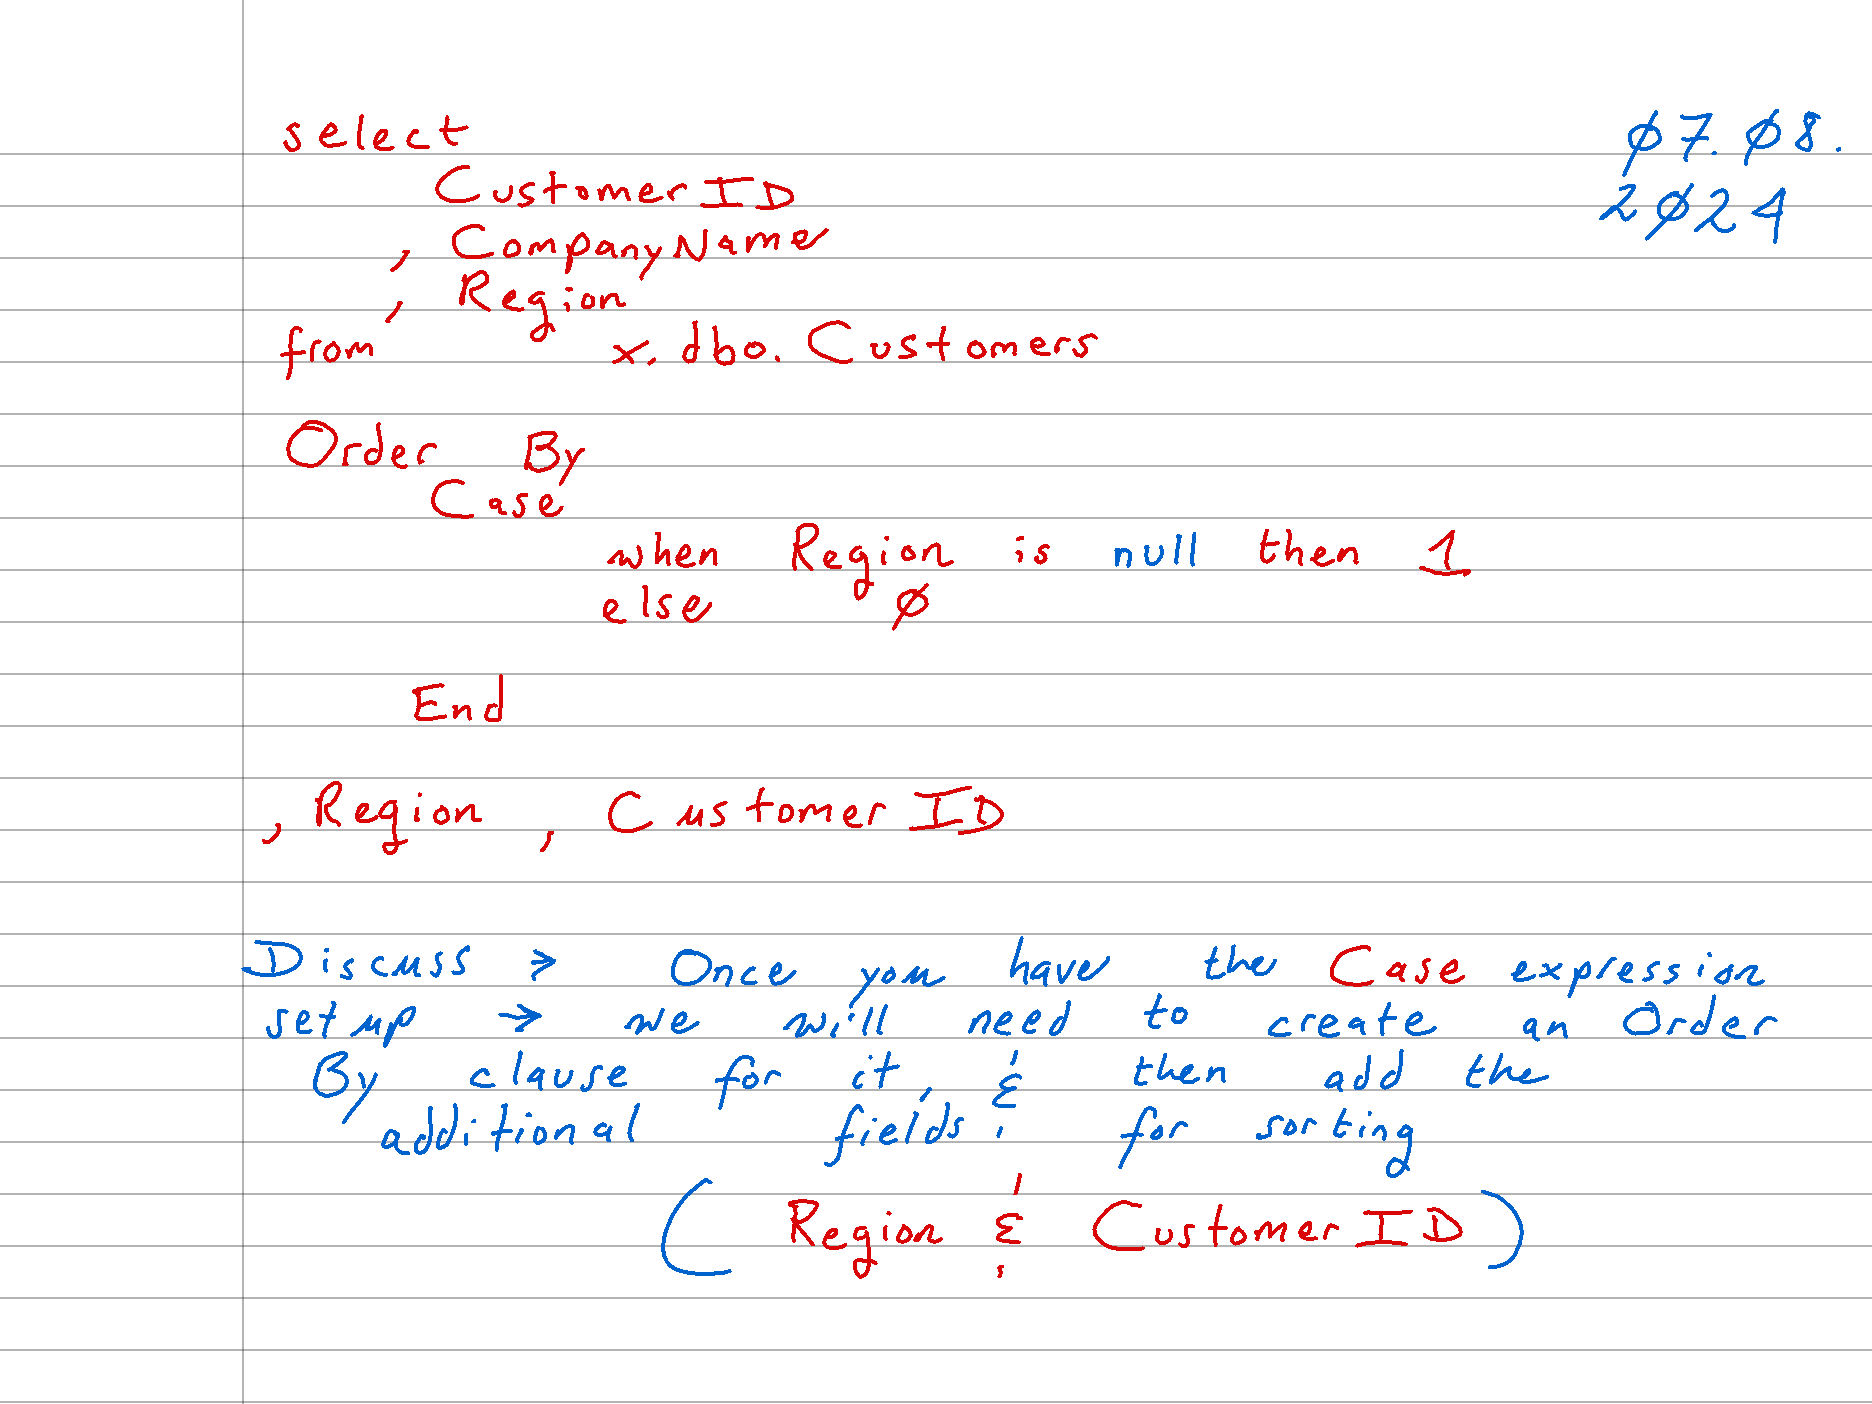 select
Ø7.Ø8.
CustomerID
2Ø24
, CompanyName
, Region
from x.dbo.Customers
Order By
Case
when Region is null then 1
else Ø
End
, Region , CustomerID
Discuss → Once you have the Case expression
set up → we will need to create an Order
By clause for it, & then add the
additional fields for sorting
( Region & CustomerID )